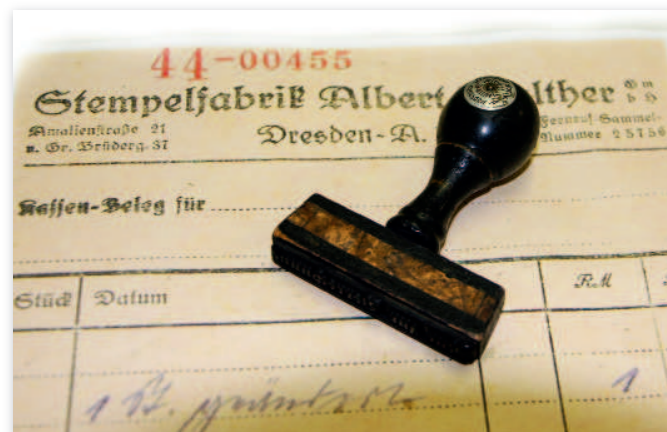 44-00455
Stempelfabrik Albert lther Gm b H
Amalienstraße 21
u. Gr. Brüderg. 37
Dresden-A.
Fernruf-Sammel-
Nummer 25156
Kassen-Beleg für
Stück Datum RM
1 St. geändert 1